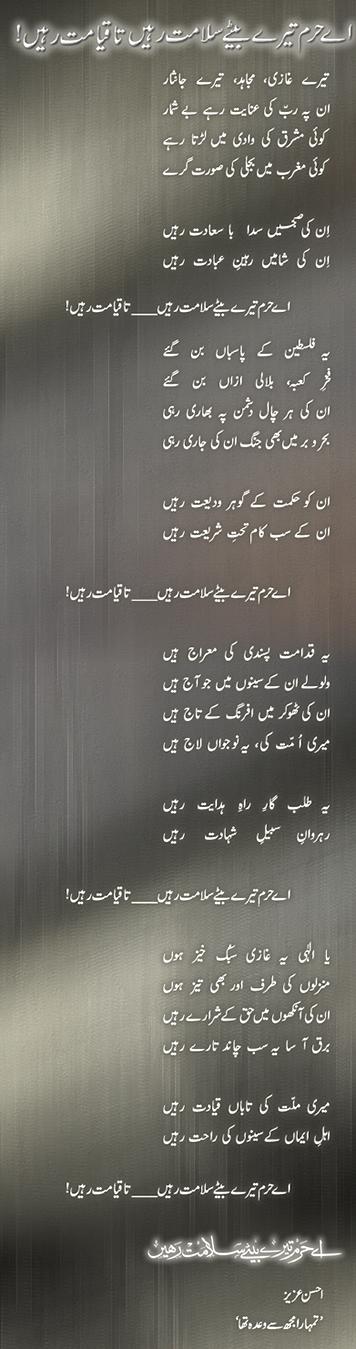 اے حرم تیرے بیٹے سلامت رہیں تا قیامت رہیں!
تیرے غازی، مجاہد، تیرے جانثار
ان پہ ربّ کی عنایت رہے بے شمار
کوئی مشرق کی وادی میں لڑتا رہے
کوئی مغرب میں بجلی کی صورت گرے
اِن کی صبحیں سدا با سعادت رہیں
اِن کی شامیں رہینِ عبادت رہیں
اے حرم تیرے بیٹے سلامت رہیں___تا قیامت رہیں!
یہ فلسطین کے پاسباں بن گئے
فخرِ کعبہ، بلالی اذاں بن گئے
ان کی ہر چال دشمن پہ بھاری رہی
بحر و بر میں بھی جنگ ان کی جاری رہی
ان کو حکمت کے گوہر ودیعت رہیں
ان کے سب کام تحتِ شریعت رہیں
اے حرم تیرے بیٹے سلامت رہیں___تا قیامت رہیں!
یہ قدامت پسندی کی معراج ہیں
ولولے ان کے سینوں میں جو آج ہیں
ان کی ٹھوکر میں افرنگ کے تاج ہیں
میری اُمّت کی، یہ نوجواں لاج ہیں
یہ طلب گارِ راہِ ہدایت رہیں
رہروانِ سبیلِ شہادت رہیں
اے حرم تیرے بیٹے سلامت رہیں___تا قیامت رہیں!
یا الٰہی یہ غازی سبُک خیز ہوں
منزلوں کی طرف اور بھی تیز ہوں
ان کی آنکھوں میں حق کے شرارے رہیں
برق آسا یہ سب چاند تارے رہیں
میری ملّت کی تاباں قیادت رہیں
اہلِ ایماں کے سینوں کی راحت رہیں
اے حرم تیرے بیٹے سلامت رہیں___تا قیامت رہیں!
اے حرم تیرے بیٹے سلامت رہیں
احسن عزیز
’تمہارا مجھ سے وعدہ تھا‘